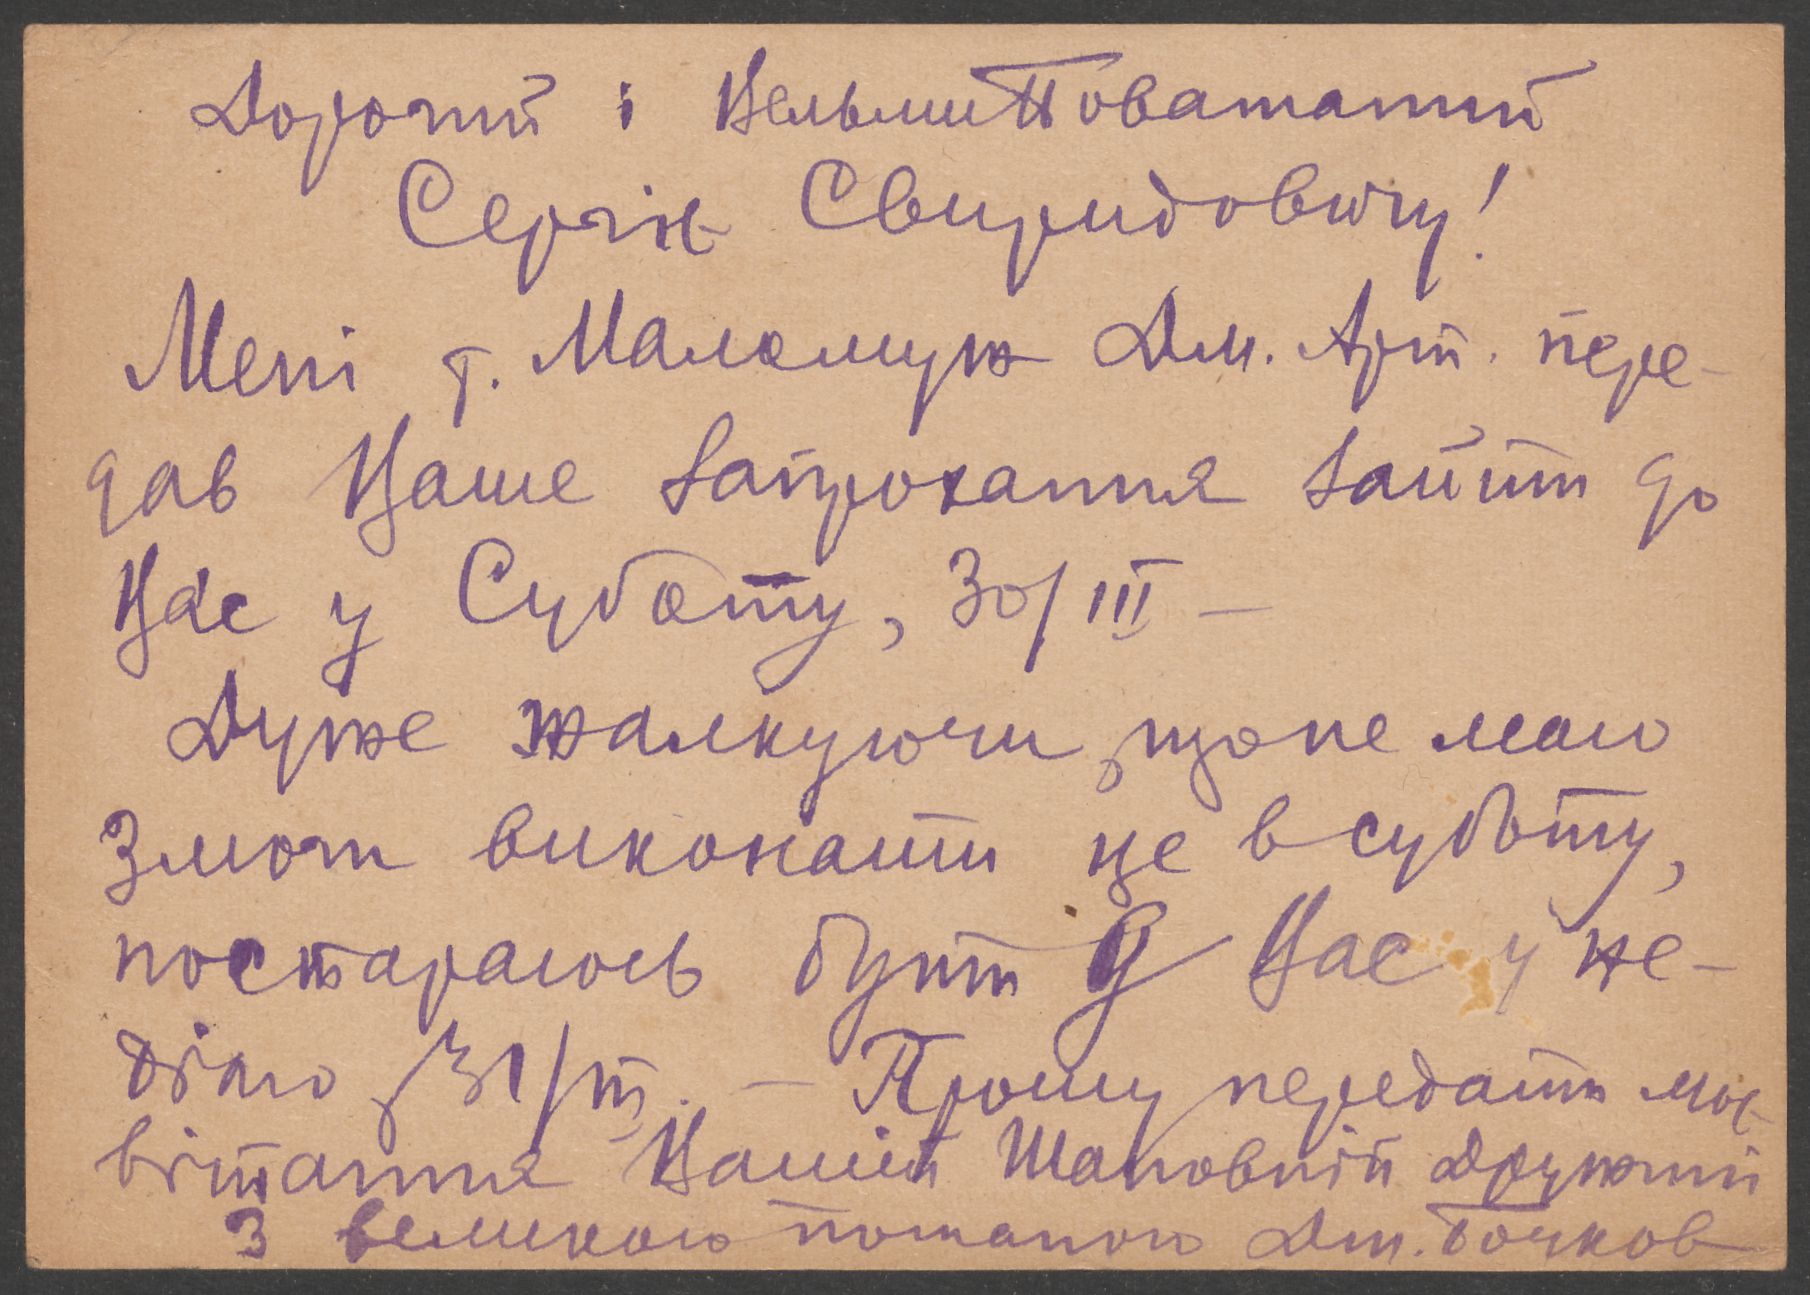 Дорогий і ВельмиПоважаний
Сергіє Свиридовичу!
Мені т. Маломуж Дм. Арт. пере-
дав Ваше запрохання зайти до
Вас у Суботу, 30/III –
Дуже жалкуючи, що не маю
змоги виконати це в суботу,
постараюсь бути у Вас у не-
ділю, 31/III. – Прошу передати моє
вітання Вашій Шановній Дружині
З великою пошаною Дм. Бочков